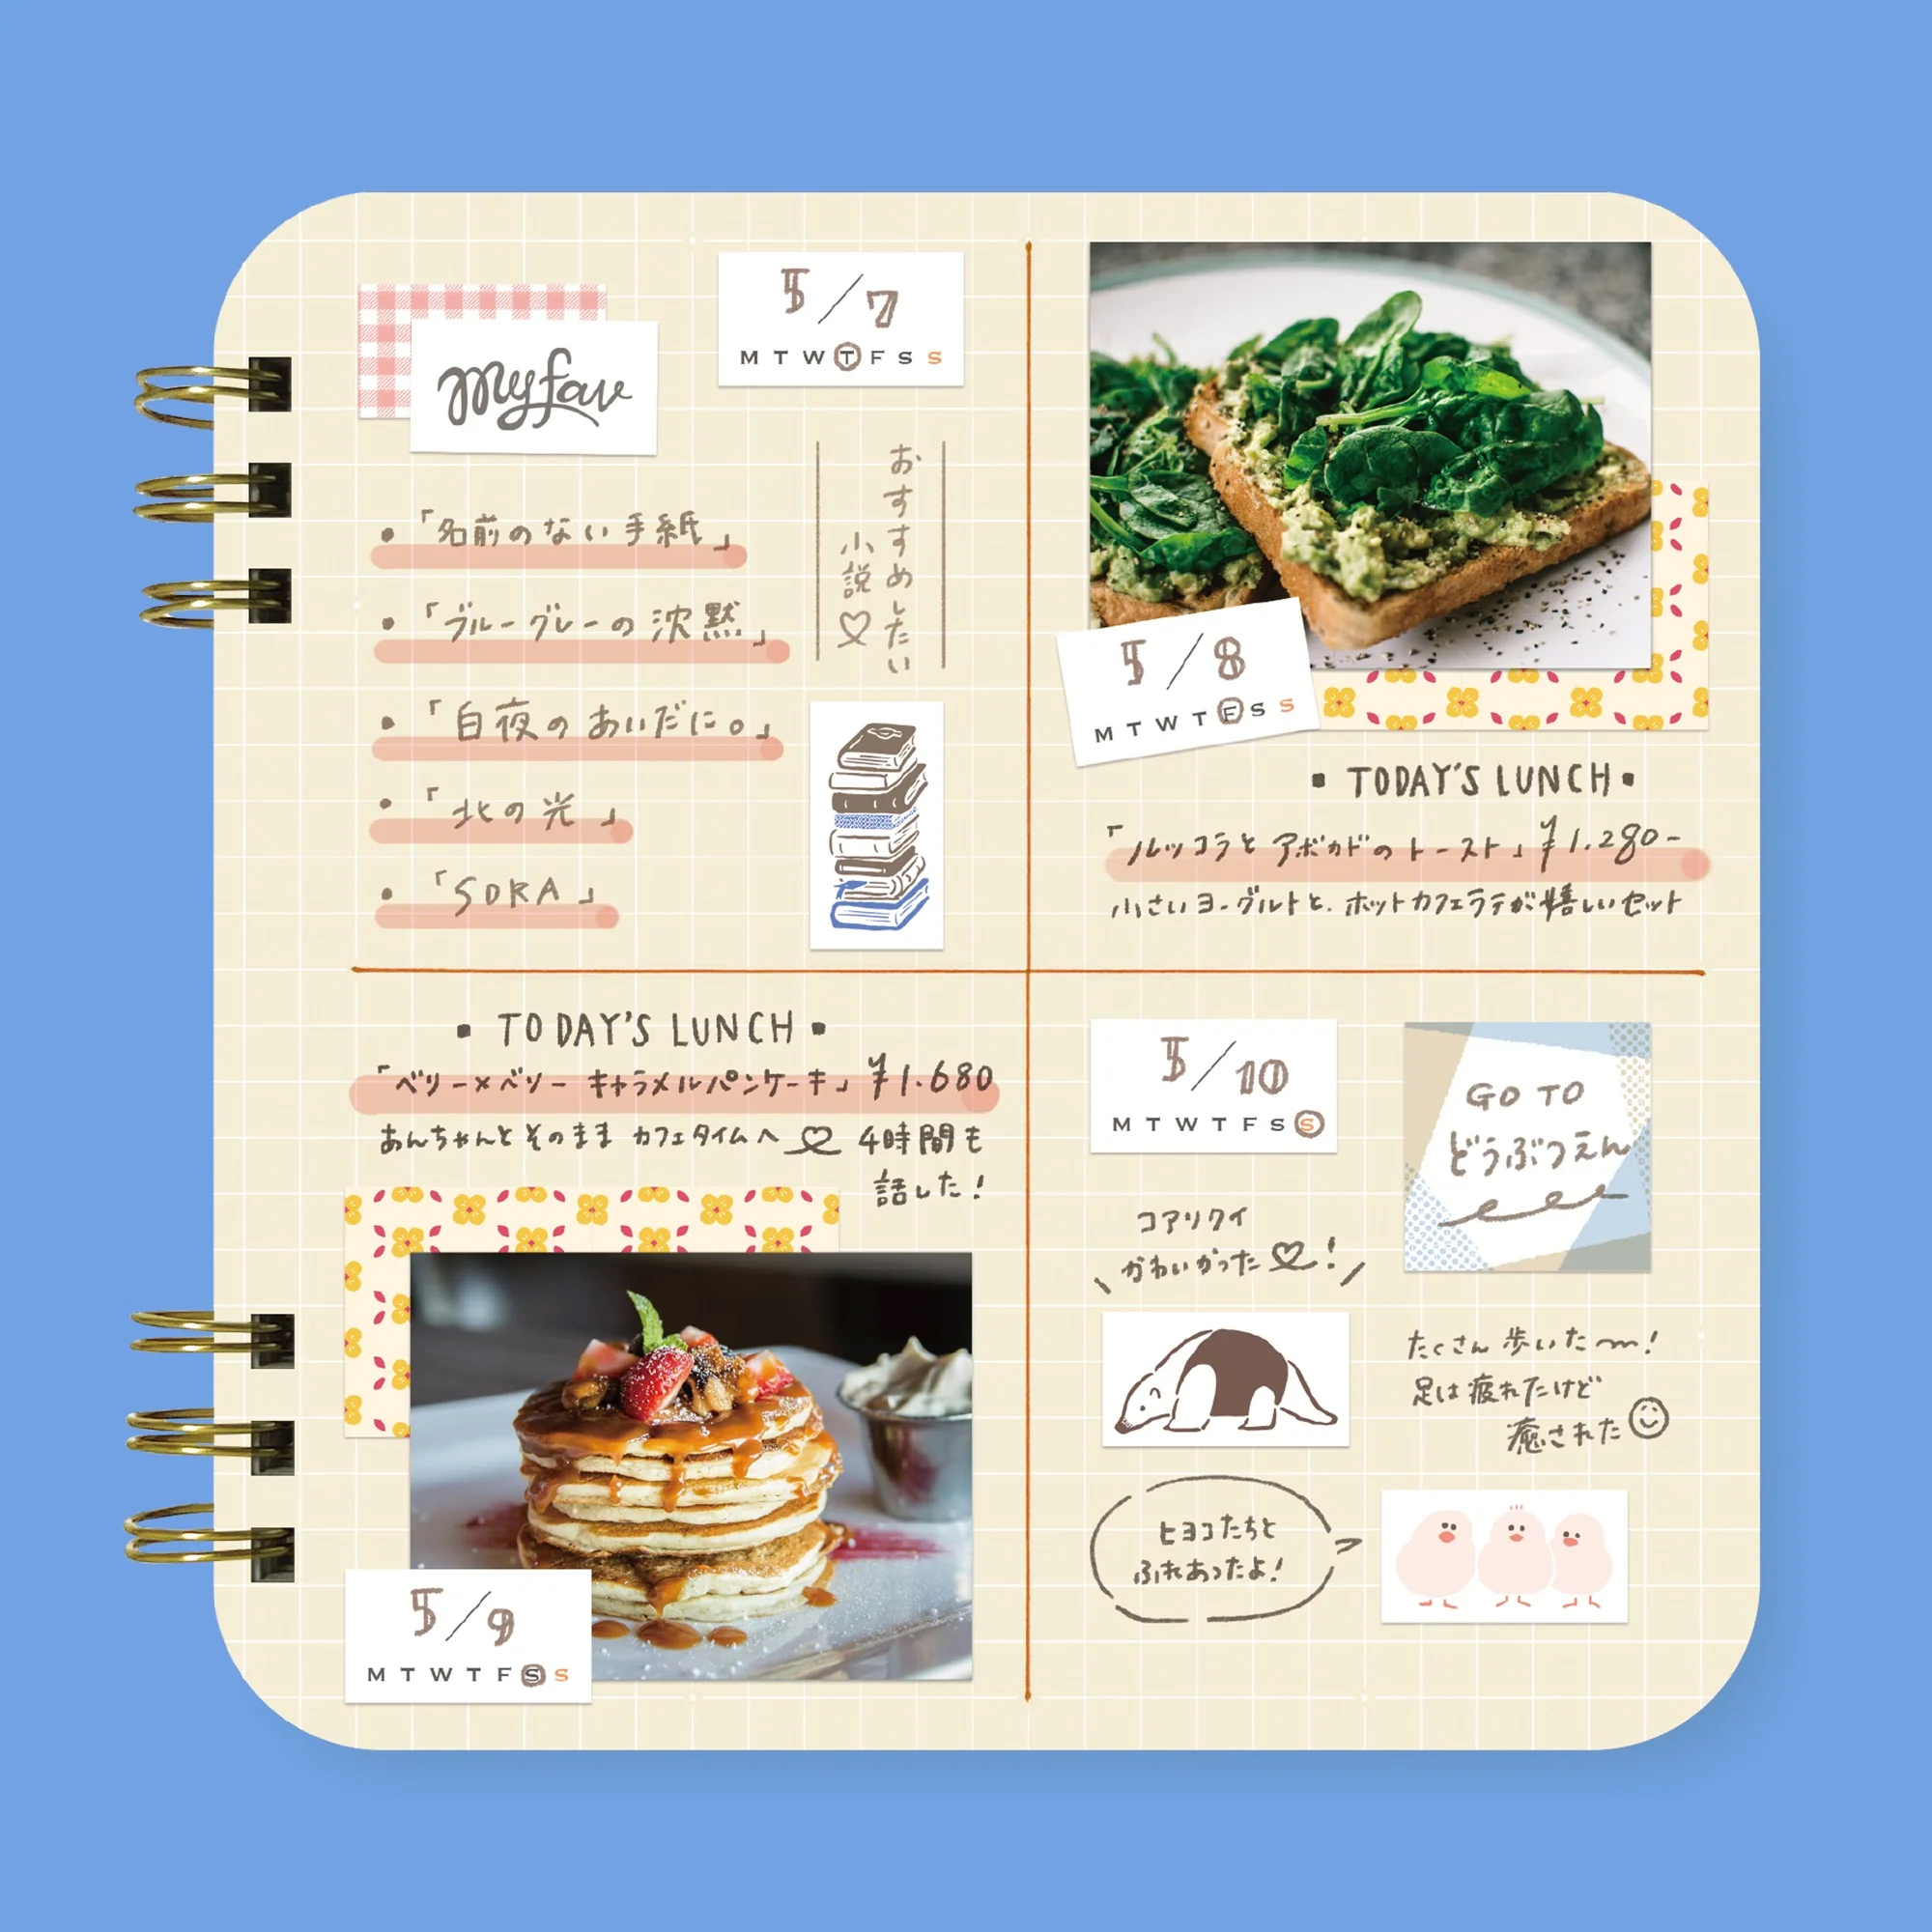 my fav
5/7
M T W T F S S
おすすめしたい
小説♡
• 「名前のない手紙」
• 「ブルーグレーの沈黙」
• 「白夜のあいだに。」
• 「北の光」
• 「SORA」
5/8
M T W T F S S
▪ TODAY'S LUNCH ▪
「ルッコラとアボカドのトースト」¥1.280-
小さいヨーグルトと、ホットカフェラテが嬉しいセット
▪ TODAY'S LUNCH ▪
「ベリー×ベリー キャラメルパンケーキ」¥1.680
あんちゃんとそのまま カフェタイムへ♡ 4時間も
話した!
5/9
M T W T F S S
5/10
M T W T F S S
GO TO
どうぶつえん
コアリクイ
かわいかった♡!
たくさん歩いた〜!
足は疲れたけど
癒された☺
ヒヨコたちと
ふれあったよ!